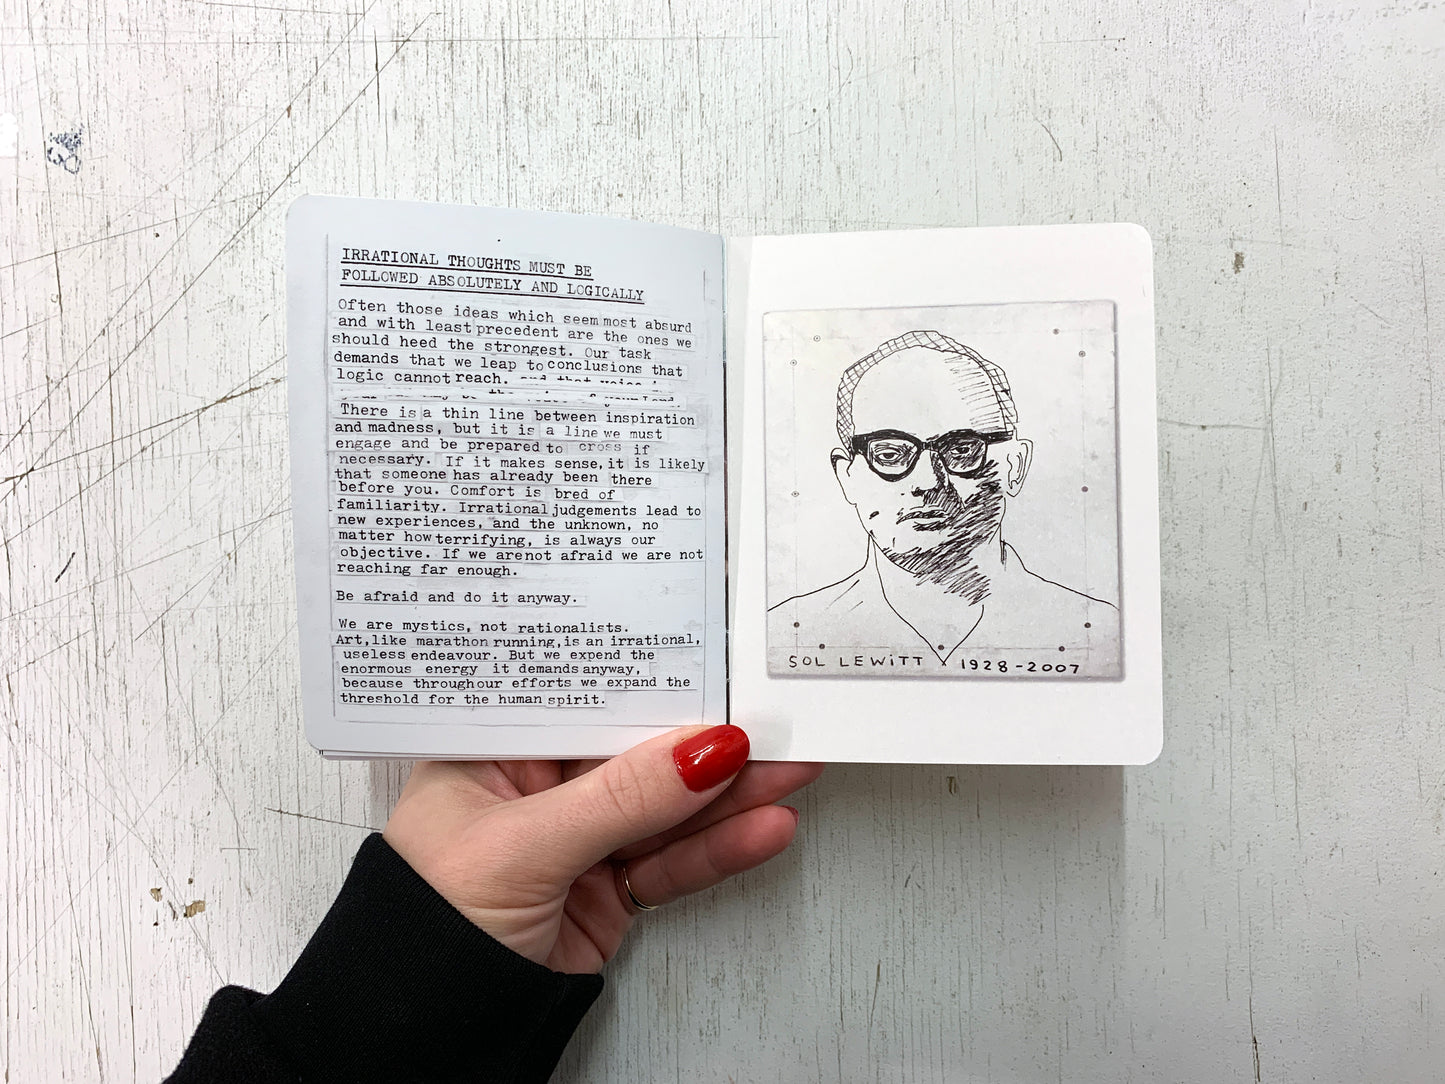 IRRATIONAL THOUGHTS MUST BE
FOLLOWED ABSOLUTELY AND LOGICALLY
Often those ideas which seem most absurd
and with least precedent are the ones we
should heed the strongest. Our task
demands that we leap to conclusions that
logic cannot reach.
There is a thin line between inspiration
and madness, but it is a line we must
engage and be prepared to cross if
necessary. If it makes sense, it is likely
that someone has already been there
before you. Comfort is bred of
familiarity. Irrational judgements lead to
new experiences, and the unknown, no
matter how terrifying, is always our
objective. If we are not afraid we are not
reaching far enough.
Be afraid and do it anyway.
We are mystics, not rationalists.
Art, like marathon running, is an irrational,
useless endeavour. But we expend the
enormous energy it demands anyway,
because through our efforts we expand the
threshold for the human spirit.
SOL LEWITT 1928-2007